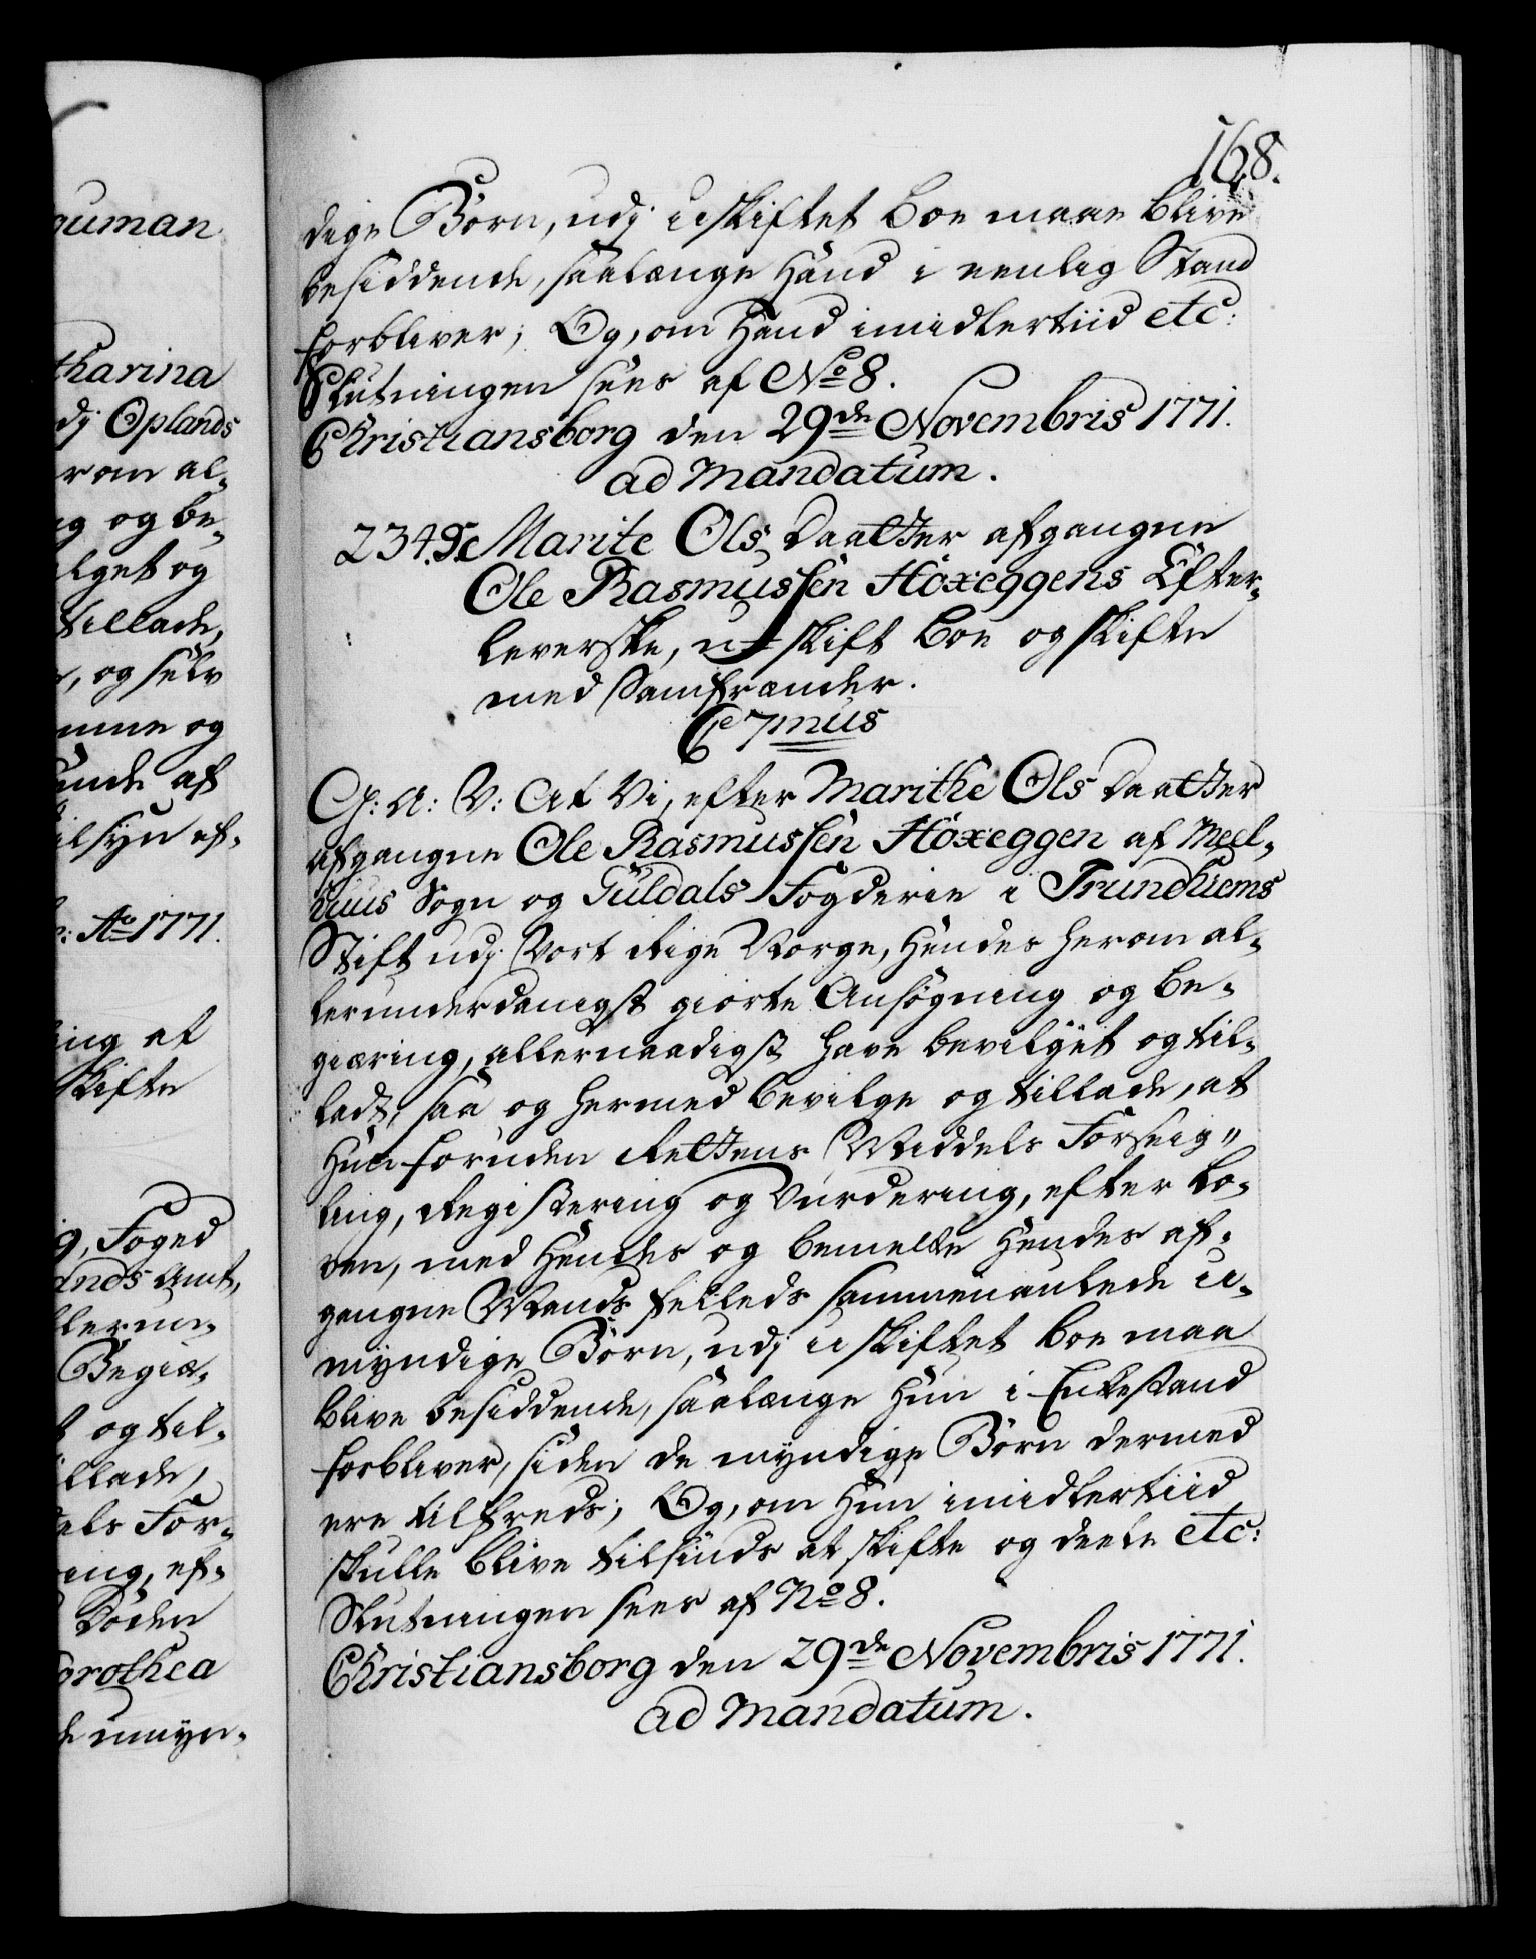 168.
dige Børn, udj uskiftet Boe maae blive
besiddende, saalænge Hand i eenlig Stand
forbliver; Og, om Hand imidlertiid etc:
Slutningen sees af No 8.
Christiansborg den 29de Novembris 1771.
ad Mandatum.
2349. Marite Ols Daatter afgangne
Ole Rasmussen Höxeggens Efter-
leverske, uskift Boe og skifte
med Samfrænder.
C 7mus
C: A: V: At Vi, efter Marithe Ols Daatter
afgangne Ole Rasmussen Höxeggen af Meel-
huus Sogn og Guldals Fogderie i Trundhiems
Stift udj Vort Rige Norge, Hendes herom al-
lerunderdanigst giorte Ansøgning og be-
giæring, allernaadigst have bevilget og til-
ladt, saa og hermed bevilge og tillade, at
Hun foruden Rettens Middels Forseig-
ling, Registering og Vurdering, efter Lo-
ven, med Hendes og bemelte Hendes af-
gangne Mands felleds sammenaulede u-
myndige Børn, udj uskiftet boe maa
blive besiddende, saalænge Hun i Enkestand
forbliver, siden de myndige Børn dermed
ere tilfreds; Og, om Hun imidlertiid
skulle blive tilsinds at skifte og deele etc:
Slutningen sees af No 8.
Christiansborg den 29de Novembris 1771.
ad Mandatum.
ouman
tharina
dj Oplands
rom al-
og be-
lget og
tillade,
, og selv
mme og
unde af
ilsyn af-
: Ao 1771.
ing at
skifte
g, Foged
ands Amt,
llerun-
Begiæ-
t og til-
illade,
els For-
ring, ef-
Døden
orothea
umyn-